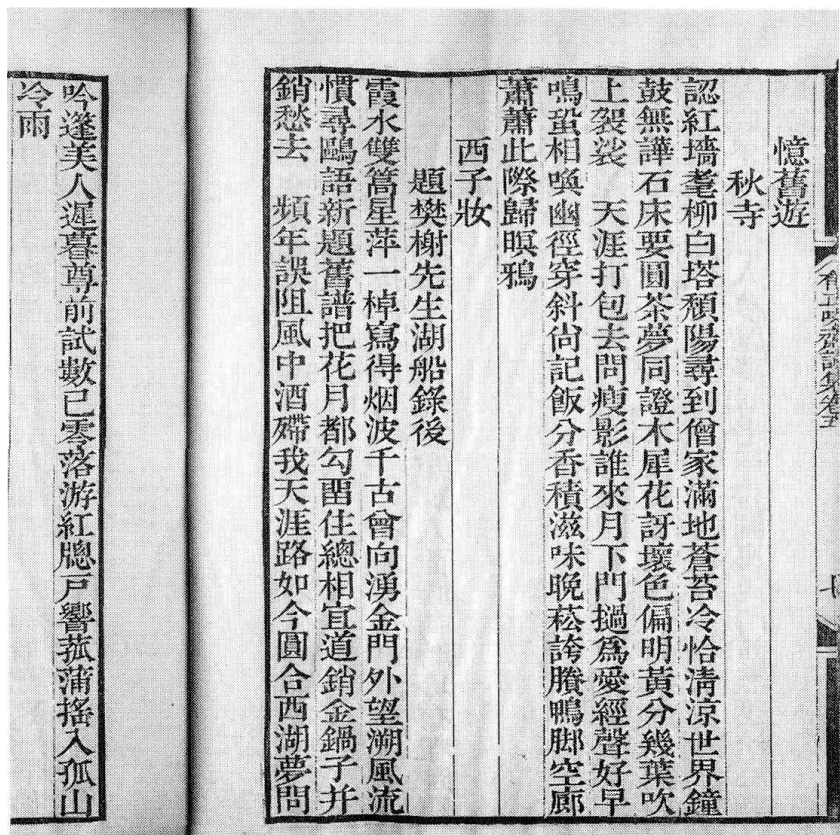 有正味齋詞集卷五
七
憶舊遊
秋寺
認紅墻耄柳白塔頹陽尋到僧家滿地蒼苔冷恰清涼世界鐘
鼓無譁石床要圓茶夢同證木犀花訝壞色偏明黃分幾葉吹
上袈裟　天涯打包去問瘦影誰來月下門撾爲愛經聲好早
鳴蛩相喚幽徑穿斜尙記飯分香積滋味晚菘誇賸鴨脚空廊
蕭蕭此際歸暝鴉
西子妝
題樊榭先生湖船錄後
霞水雙篙星萍一棹寫得烟波千古曾向湧金門外望溯風流
慣尋鷗語新題舊譜把花月都勾畱住總相宜道銷金鍋子并
銷愁去　頻年誤阻風中酒殢我天涯路如今圓合西湖夢問
吟篷美人遲暮尊前試數已零落游紅牕戸響菰蒲搖入孤山
冷雨